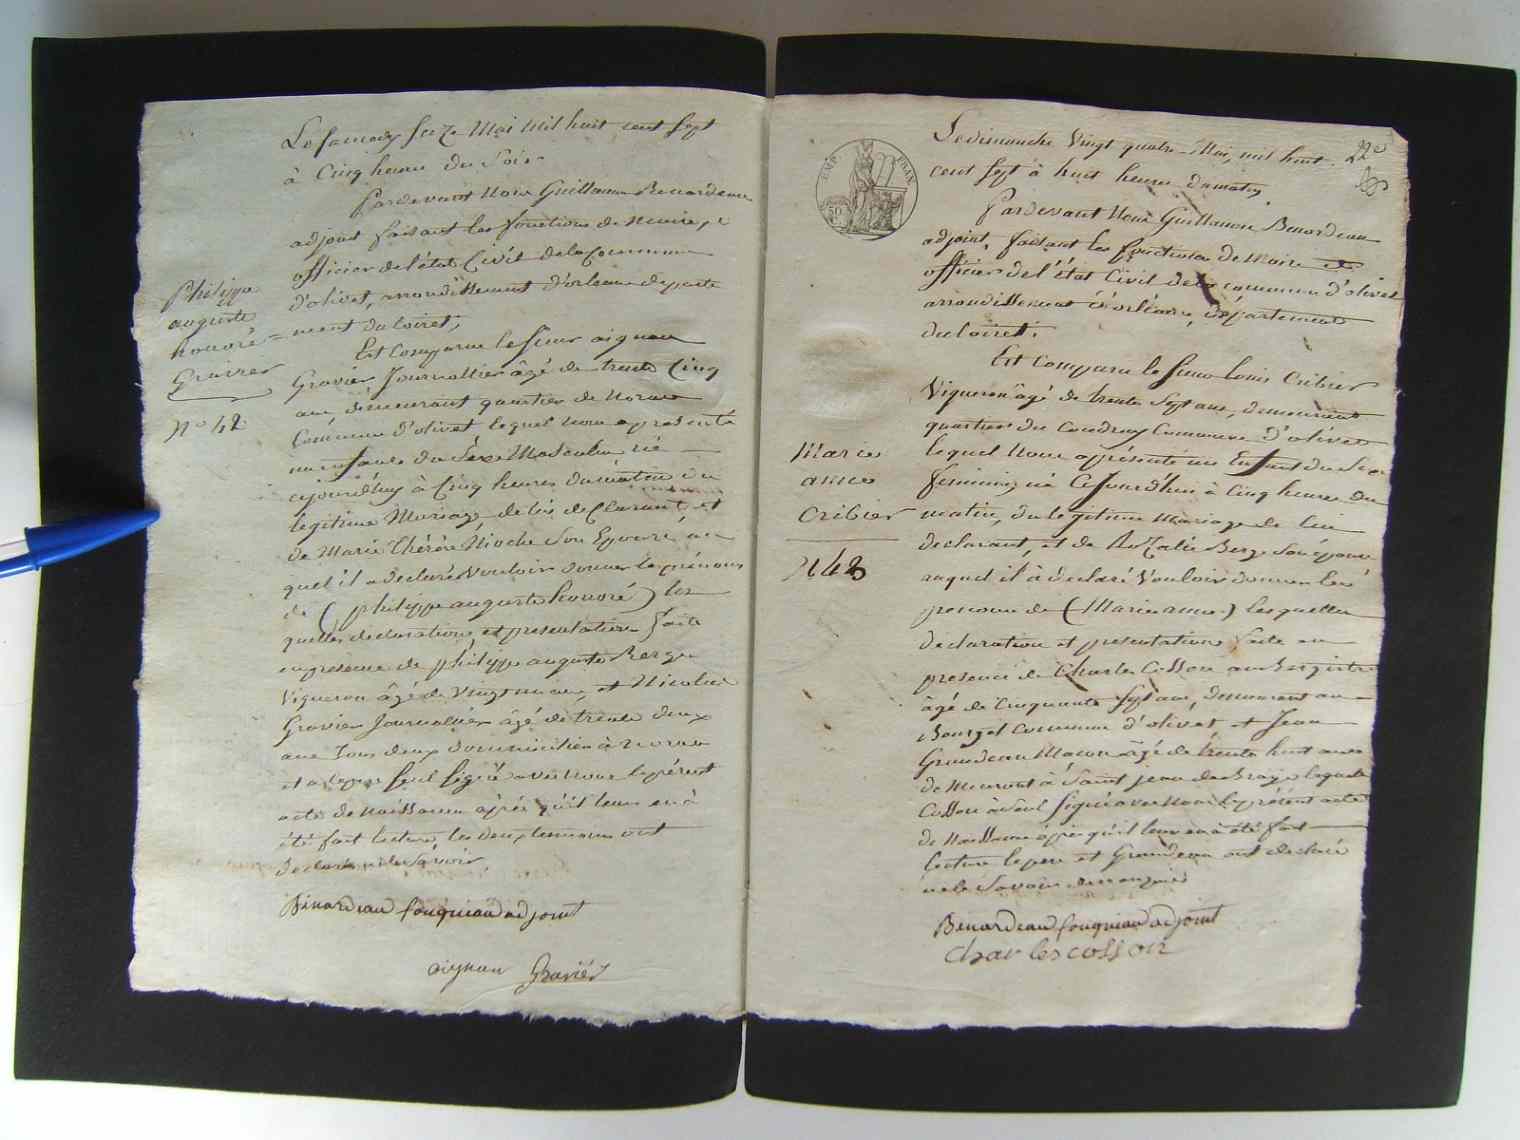 Le samedy seize Mai mil huit cent sept
à Cinq heure du Soir
Pardevant Nous Guillaume Benardeau
adjoint faisant les fonctions de Maire, et
officier de l'état Civil de la Commune
d'olivet, arrondissement d'orleans departe
ment du loiret;
Philippe
auguste
honoré
Gravier
N° 42
Est Comparu le sieur aignan
Gravier Journallier âgé de trente Cinq
ans demeurant quartier de
Commune d'olivet lequel nous a présenté
un enfant du Séxe Masculin né
cejourd'huy à Cinq heures du matin du
légitime Mariage de lui déClarant, et
de Marie Thérèse Nioche Son Epouse, au
quel il a declaré Vouloir donner les prénoms
de (philippe auguste honoré) les
quelles declarations et presentation faite
en presence de philippe auguste Berge
Vigneron âgé de Vingt neuf, et Nicolas
Gravier Journallier âgé de trente deux
ans Tous deux domiciliés à
et a le pere seul signé avec nous le présent
acte de naissance après qu'il leur en à
été fait lecture, les deux temoins ont
declaré ne le Savoir
Benardeau fouqueau adjoint
aignan Gravier
EMP. FRAN.
22e
Le dimanche Vingt quatre Mai, mil huit
cent sept à huit heures du matin
Pardevant Nous Guillaume Benardeau
adjoint, faisant les fonctions de Maire et
officier de l'état Civil de la commune d'olivet
arrondissement d'orléans, département
du loiret;
Marie
anne
Cribier
N 43
Est Comparu le sieur louis Cribier
Vigneron âgé de trente sept ans, demeurant
quartier du Coudray Commune d'olivet
lequel Nous a présenté un Enfant du Sexe
feminin, né Cejourd'hui à Cinq heures du
matin, du légitime mariage de lui
declarant, et de Rozalie Berge son épouse
auquel il à déclaré Vouloir donner les
prenoms de (Marie anne) lesquelles
declaration et presentation faite en
presence de Charles Cosson
âgé de Cinquante sept ans, demeurant au
Bourg et Commune d'olivet et Jean
Grandeau Macon âgé de trente huit ans
demeurant à Saint jean de Braye lequel
Cosson à seul signé avec Nous le présent acte
de Naissance après qu'il leur en à été fait
lecture le pere et Grandeau ont declaré
ne le Savoir de ce enquis
Benardeau fouqueau adjoint
charles cosson